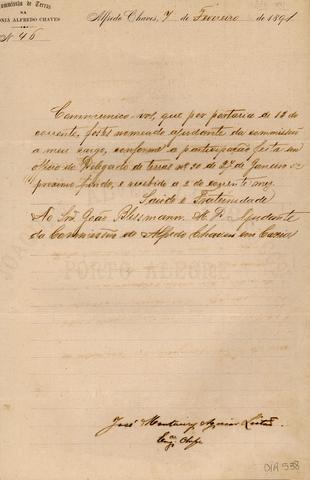 Commissão de Terras
NA
COLONIA ALFREDO CHAVES
Nº 46
Alfredo Chaves, 7 de Fevereiro de 1891
Communico-vos, que por portaria de 12 de
corrente, fostes nomeado ajudante da commissão
a meu cargo, conforme a participação feita em
officio do Delegado de terras nº 20 de 27 de Janeiro
proximo findo, e recebido a 2 do corrente mez.
Saude e Fraternidade
Ao Snr. João Blessmann. M. D. Ajudante
da Commissão de Alfredo Chaves em Caxias
PORTO ALEGRE
José Montaury Aguiar Leitão
Engº Chefe
DIA 538